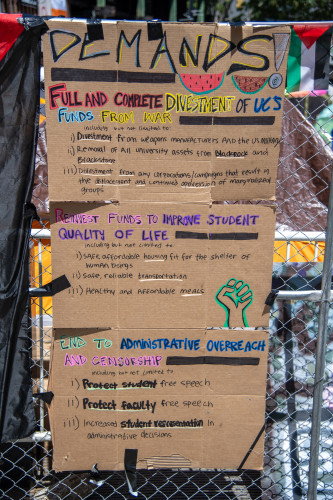 DEMANDS
FULL AND COMPLETE DIVESTMENT OF UC'S
FUNDS FROM WAR
including but not limited to:
i) Divestment from weapons manufacturers and the US Military
ii) Removal of all university assets from Blackrock and
Blackstone
iii) Divestment from any corporations/companies that result in
the and continued oppression of marginalised
groups
REINVEST FUNDS TO IMPROVE STUDENT
QUALITY OF LIFE
including but not limited to:
i) safe affordable housing fit for the shelter of
human beings
ii) safe, reliable transportation
iii) Healthy and Affordable meals
END TO ADMINISTRATIVE OVERREACH
AND CENSORSHIP
including but not limited to
i) Protect student free speech
ii) Protect faculty free speech
iii) Increased student representation in
administrative decisions